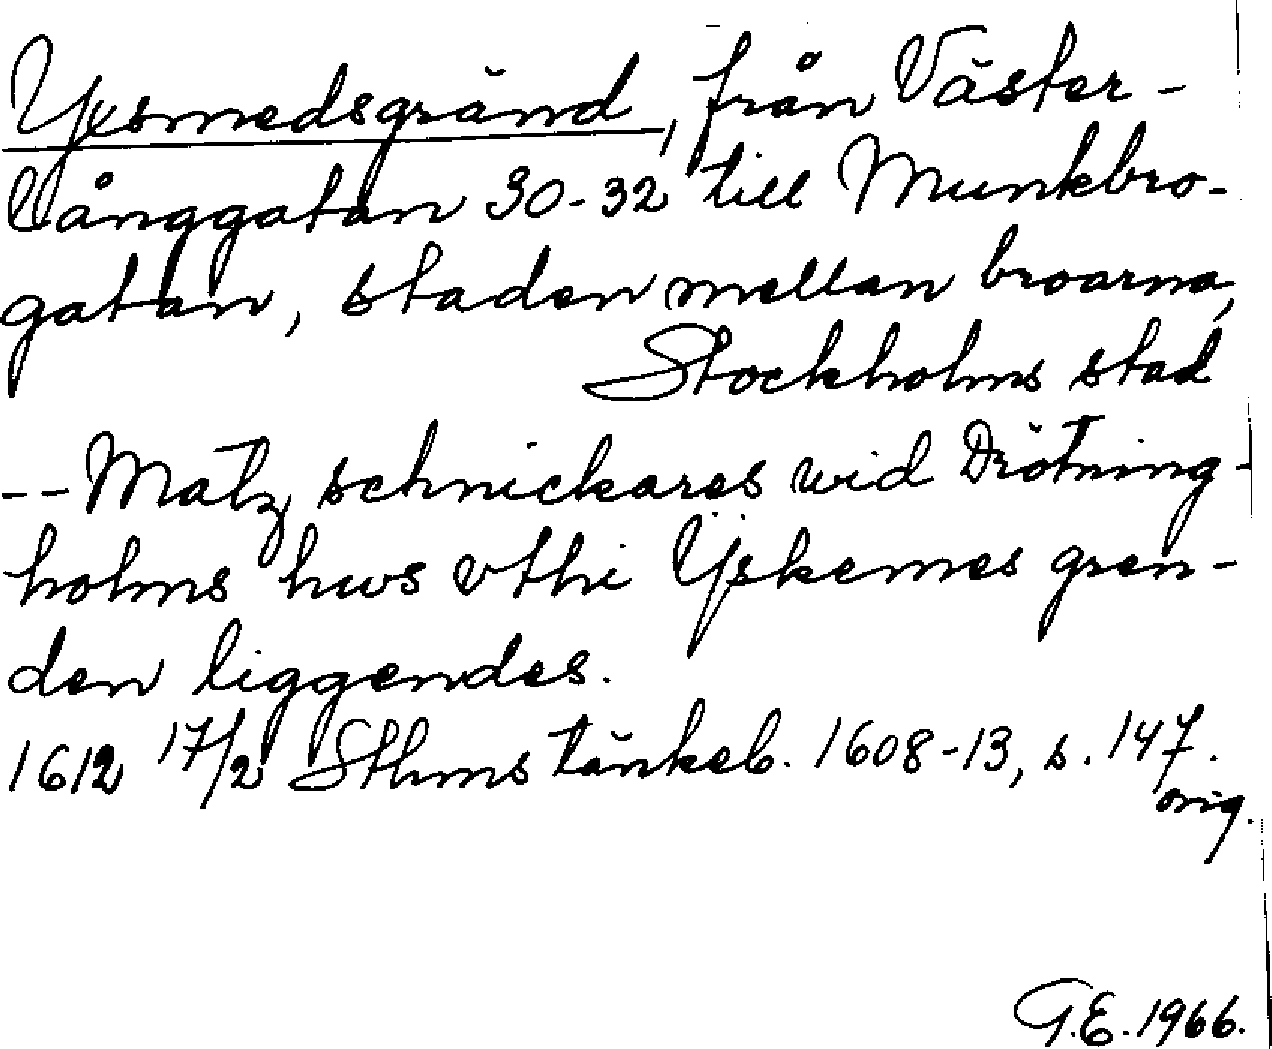 Yxsmedsgränd, från Väster-
långgatan 30-32 till Munkbro-
gatan, staden mellan broarna,
Stockholms stad
-- Matz schnickares wid Drötning-
holms hws vthi Yskemes gren-
den liggendes.
1612 17/2 Sthms tänkeb. 1608-13, s. 147.
orig.
G.E. 1966.